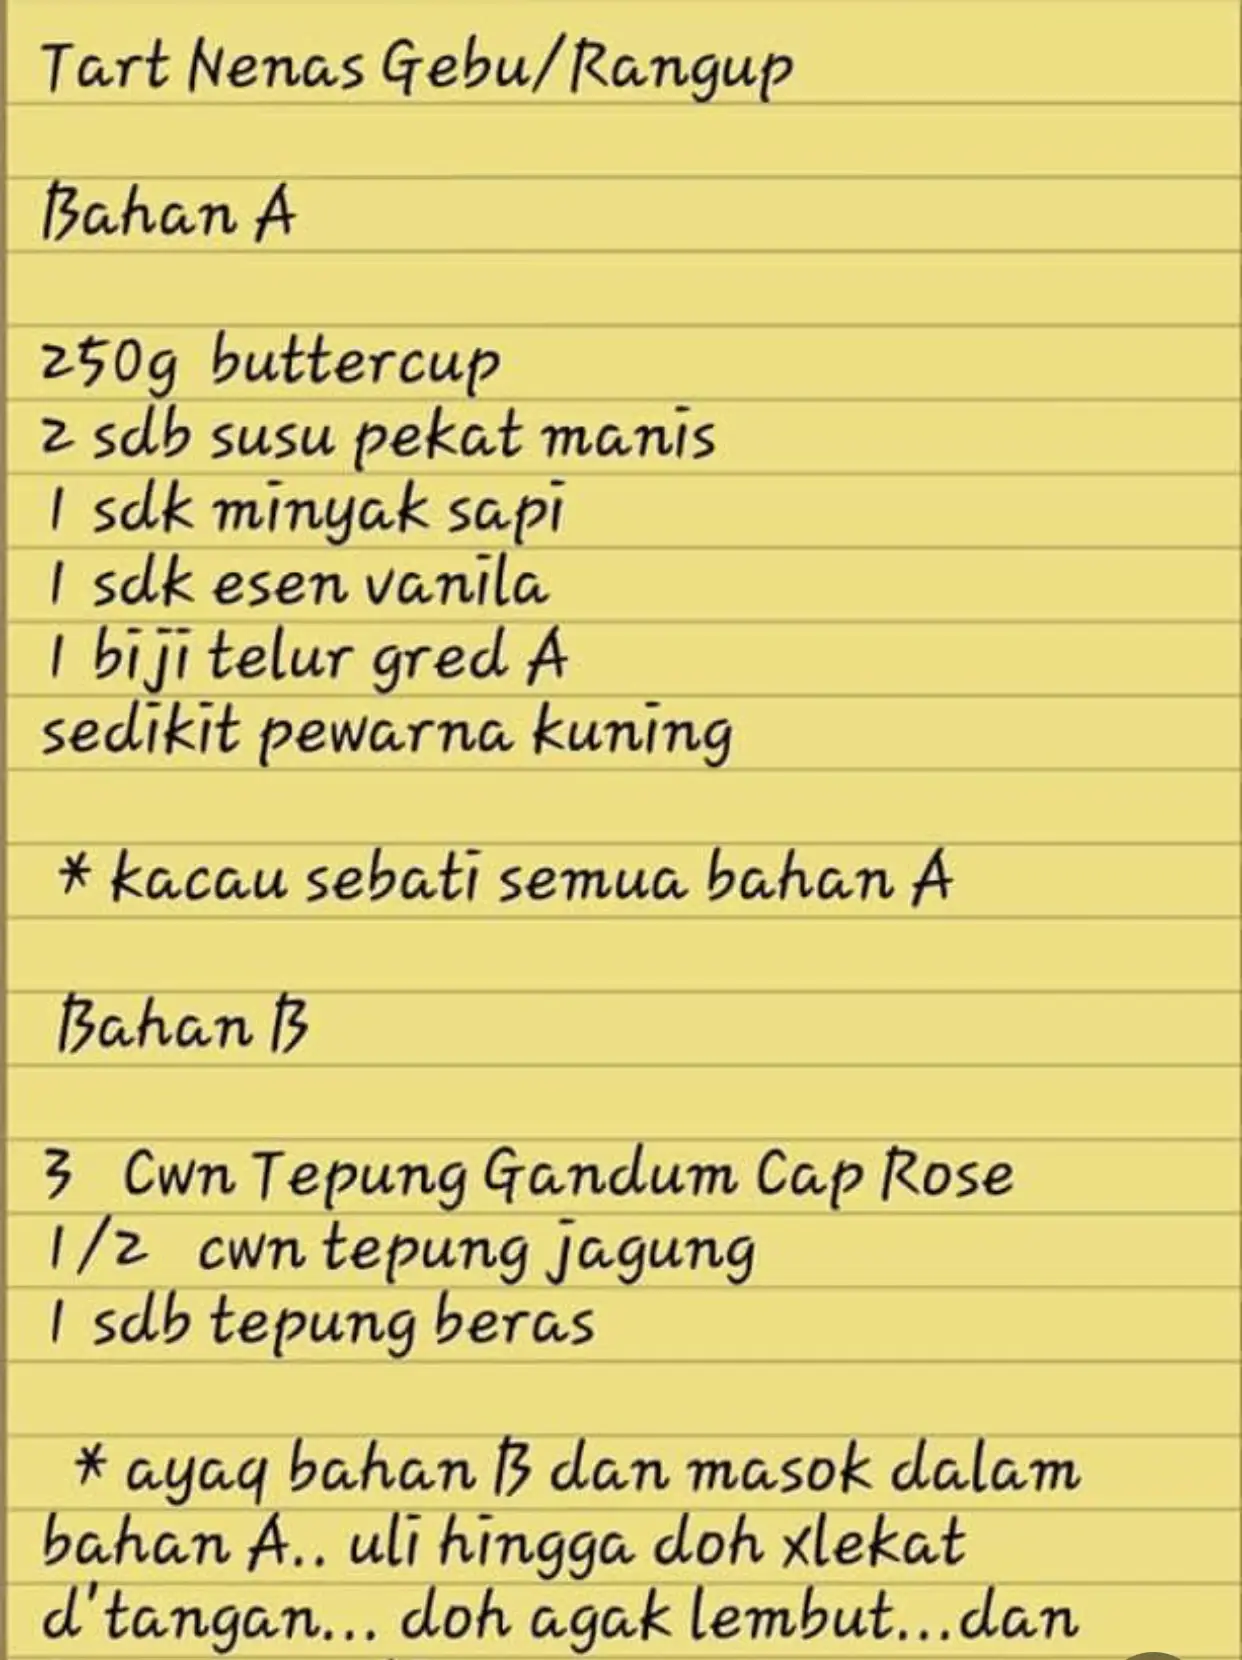 Tart Nenas Gebu/Rangup
Bahan A
250g buttercup
2 sdb susu pekat manis
1 sdk minyak sapi
1 sdk esen vanila
1 biji telur gred A
sedikit pewarna kuning
* kacau sebati semua bahan A
Bahan B
3 Cwn Tepung Gandum Cap Rose
1/2 cwn tepung jagung
1 sdb tepung beras
* ayaq bahan B dan masok dalam
bahan A.. uli hingga doh xlekat
d'tangan... doh agak lembut...dan